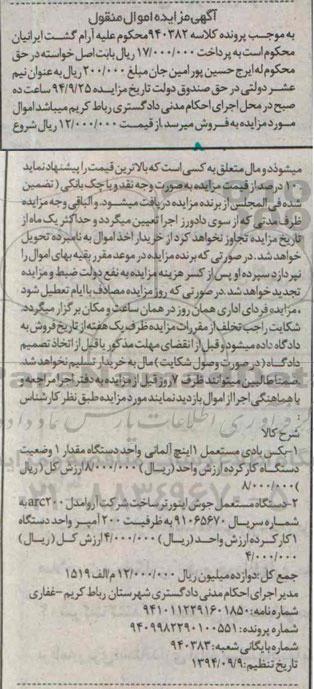 آگهی مزایده اموال منقول
به موجب پرونده کلاسه ۹۴۰۳۸۲ محکوم علیه آرام گشت ایرانیان
محکوم است به پرداخت ۱۷/۰۰۰/۰۰۰ ریال بابت اصل خواسته در حق
محکوم له ایرج حسین پور امین جان مبلغ ۲۰۰/۰۰۰ ریال به عنوان نیم
عشر دولتی در حق صندوق دولت تاریخ مزایده ۹۴/۹/۲۵ ساعت ده
صبح در محل اجرای احکام مدنی دادگستری رباط کریم میباشد اموال
مورد مزایده به فروش میرسد از قیمت ۱۲/۰۰۰/۰۰۰ ریال شروع
میشود و مال متعلق به کسی است که بالاترین قیمت را پیشنهاد نماید
۱۰ درصد از قیمت مزایده به صورت وجه نقد و یا چک بانکی (تضمین
شده فی المجلس از برنده مزایده دریافت میشود. و الباقی وجه مزایده
ظرف مدتی که از سوی دادورز اجرا تعیین میگردد و حداکثر یک ماه از
تاریخ مزایده تجاوز نخواهد کرد از خریدار اخذ اموال به نامبرده تحویل
خواهد شد. در صورتی که برنده مزایده در موعد مقرر بقیه بهای اموال را
نپردازد سپرده او پس از کسر هزینه مزایده به نفع دولت ضبط و مزایده
تجدید خواهد شد. در صورتی که روز مزایده مصادف با ایام تعطیل شود
، مزایده فردای اداری همان روز در همان ساعت و مکان برگزار میگردد.
شکایت راجب تخلف از مقررات مزایده ظرف یک هفته از تاریخ فروش به
دادگاه داده میشود و قبل از انقضای مهلت مذکور یا قبل از اتخاذ تصمیم
دادگاه (در صورت وصول شکایت) مال به خریدار تسلیم نخواهد شد.
ضمنا طالبین میتوانند ظرف ۷ روز قبل از مزایده به دفتر اجرا مراجعه و
با هماهنگی اجرا از اموال بازدید نمایند مورد مزایده طبق نظر کارشناس
:
شرح کالا
۱-بکس بادی مستعمل ۱ اینچ آلمانی واحد دستگاه مقدار ۱ وضعیت
دستگاه کار کرده ارزش واحد (ریال) ۸/۰۰۰/۰۰۰ ارزش کل (ریال
)۸/۰۰۰/۰۰۰
۲-دستگاه مستعمل جوش اینورتر ساخت شرکت آروا مدل arc۲۰۰ به
شماره سریال ۹۱۰۶۵۶۷۰ به ظرفیت ۲۰۰ آمپر واحد دستگاه
۱ کار کرده ارزش واحد (ریال) ۴/۰۰۰/۰۰۰ ارزش کل (ریال)
۴/۰۰۰/۰۰۰
جمع کل :دوازده میلیون ریال ۱۲/۰۰۰/۰۰۰ م/الف ۱۵۱۹
مدیر اجرای احکام مدنی دادگستری شهرستان رباط کریم -غفاری
شماره نامه: ۹۴۱۰۱۱۲۲۹۱۶۰۱۸۵۰
شماره پرونده: ۹۴۰۹۹۸۲۲۹۰۱۰۰۵۵۱
شماره بایگانی شعبه: ۹۴۰۳۸۳
تاریخ تنظیم: ۱۳۹۴/۰۹/۹